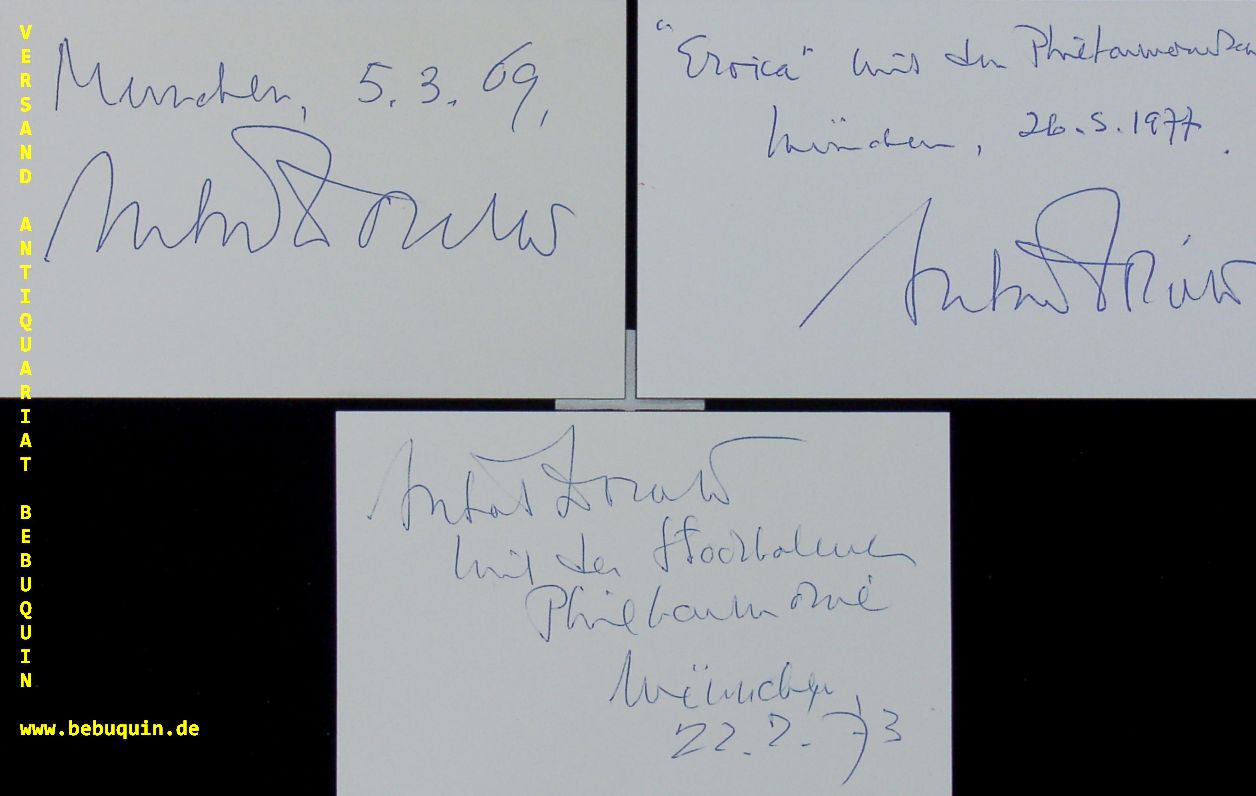 VERSAND ANTIQUARIAT BEBUQUIN
www.bebuquin.de
München, 5.3.69,
Antal Dorati
"Eroica" mit den Philharmonikern
München, 26.5.1977.
Antal Dorati
Antal Dorati
mit der Stockholmer
Philharmonie
München,
22.2.73